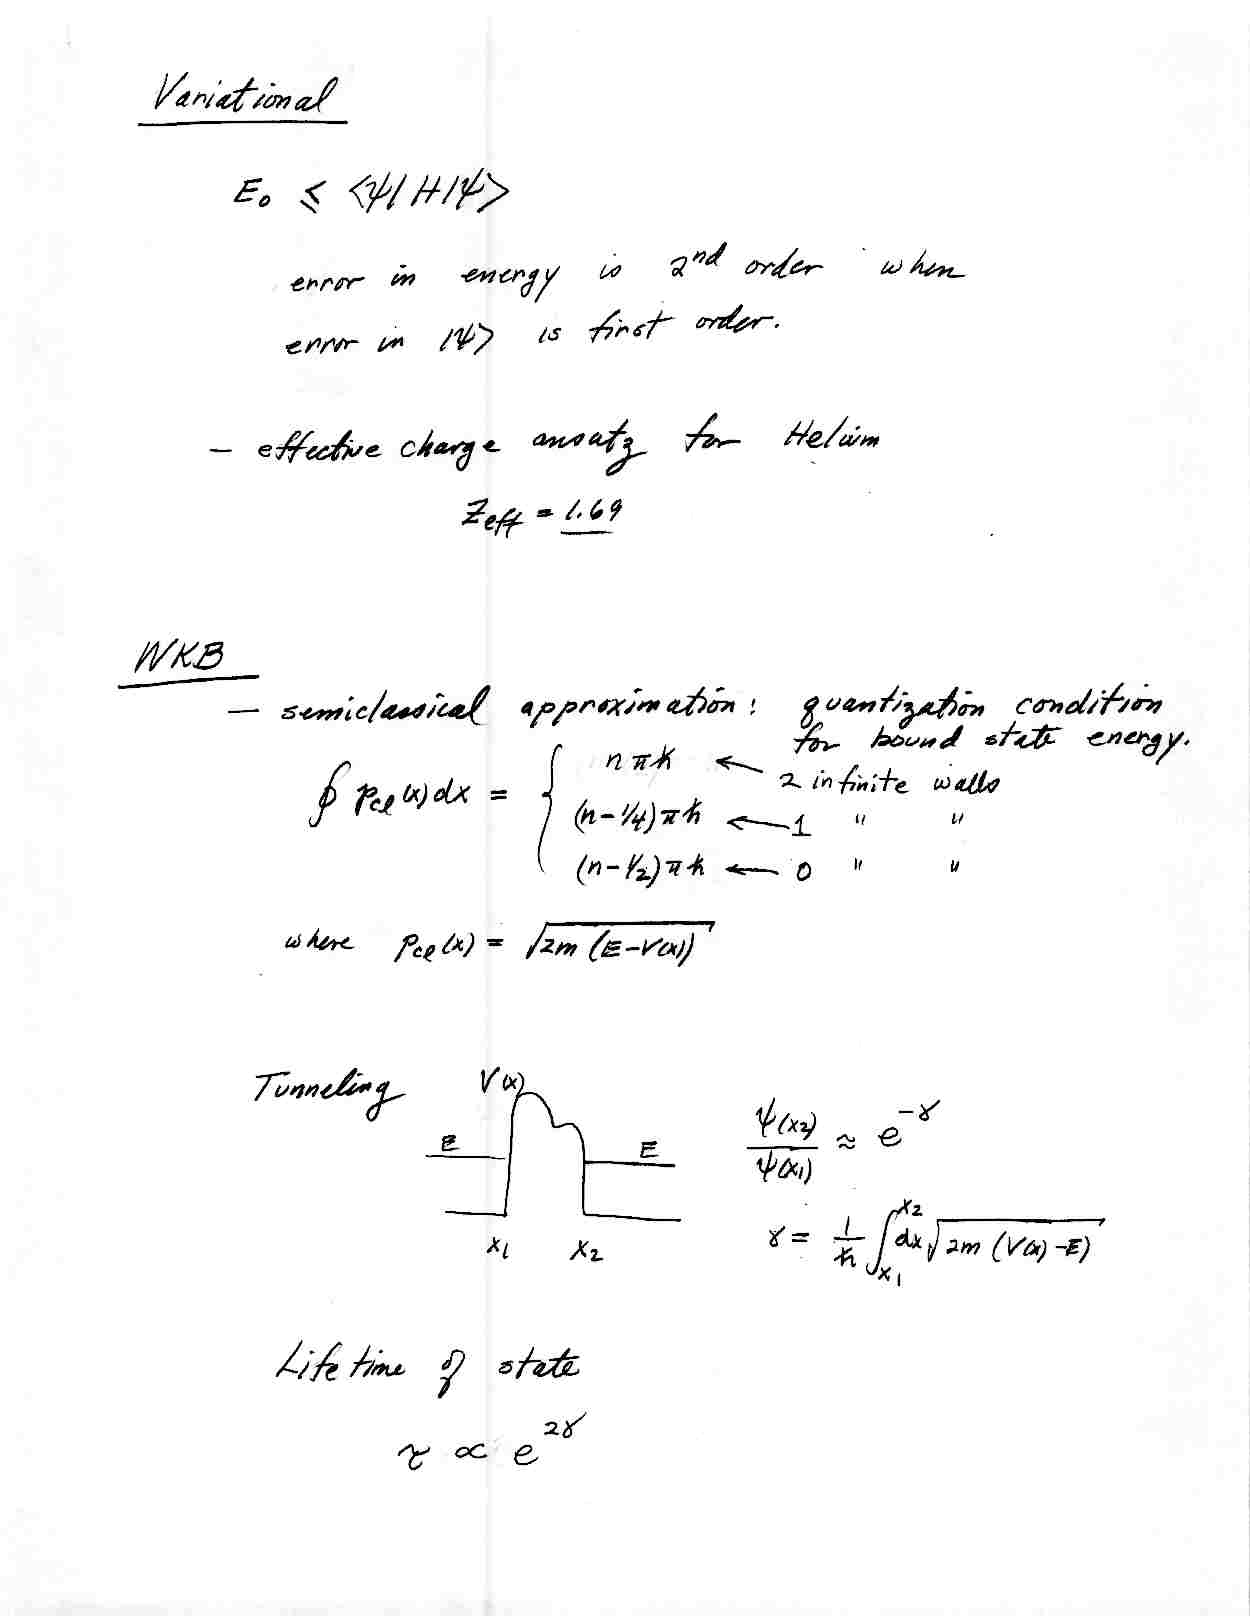 Variational
E₀ ≤ ⟨ψ|H|ψ⟩
error in energy is 2nd order when
error in |ψ⟩ is first order.
– effective charge ansatz for Helium
Z_eff = 1.69
WKB
– semiclassical approximation: quantization condition
for bound state energy.
∮ p_cl(x)dx = { nπħ ← 2 infinite walls
(n-1/4)πħ ← 1 " "
(n-1/2)πħ ← 0 " "
where p_cl(x) = √(2m (E-V(x)))
Tunneling V(x)
E E
x₁ x₂
ψ(x₂)/ψ(x₁) ≈ e^(-γ)
γ = 1/ħ ∫_x₁^x₂ dx √(2m (V(x)-E))
Lifetime of state
τ ∝ e^(2γ)